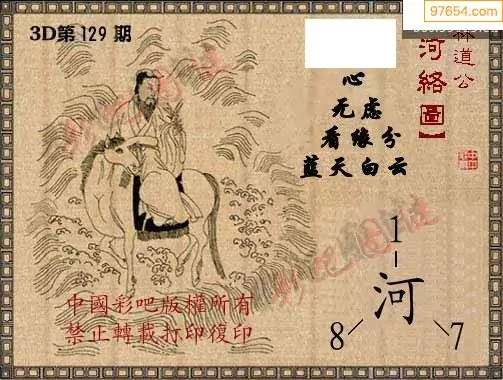 97654.com
3D第129期
林道公
河络圖】
心
无虑
看缘分
蓝天白云
1
河
8
7
中國彩吧版權所有
禁止轉載打印復印